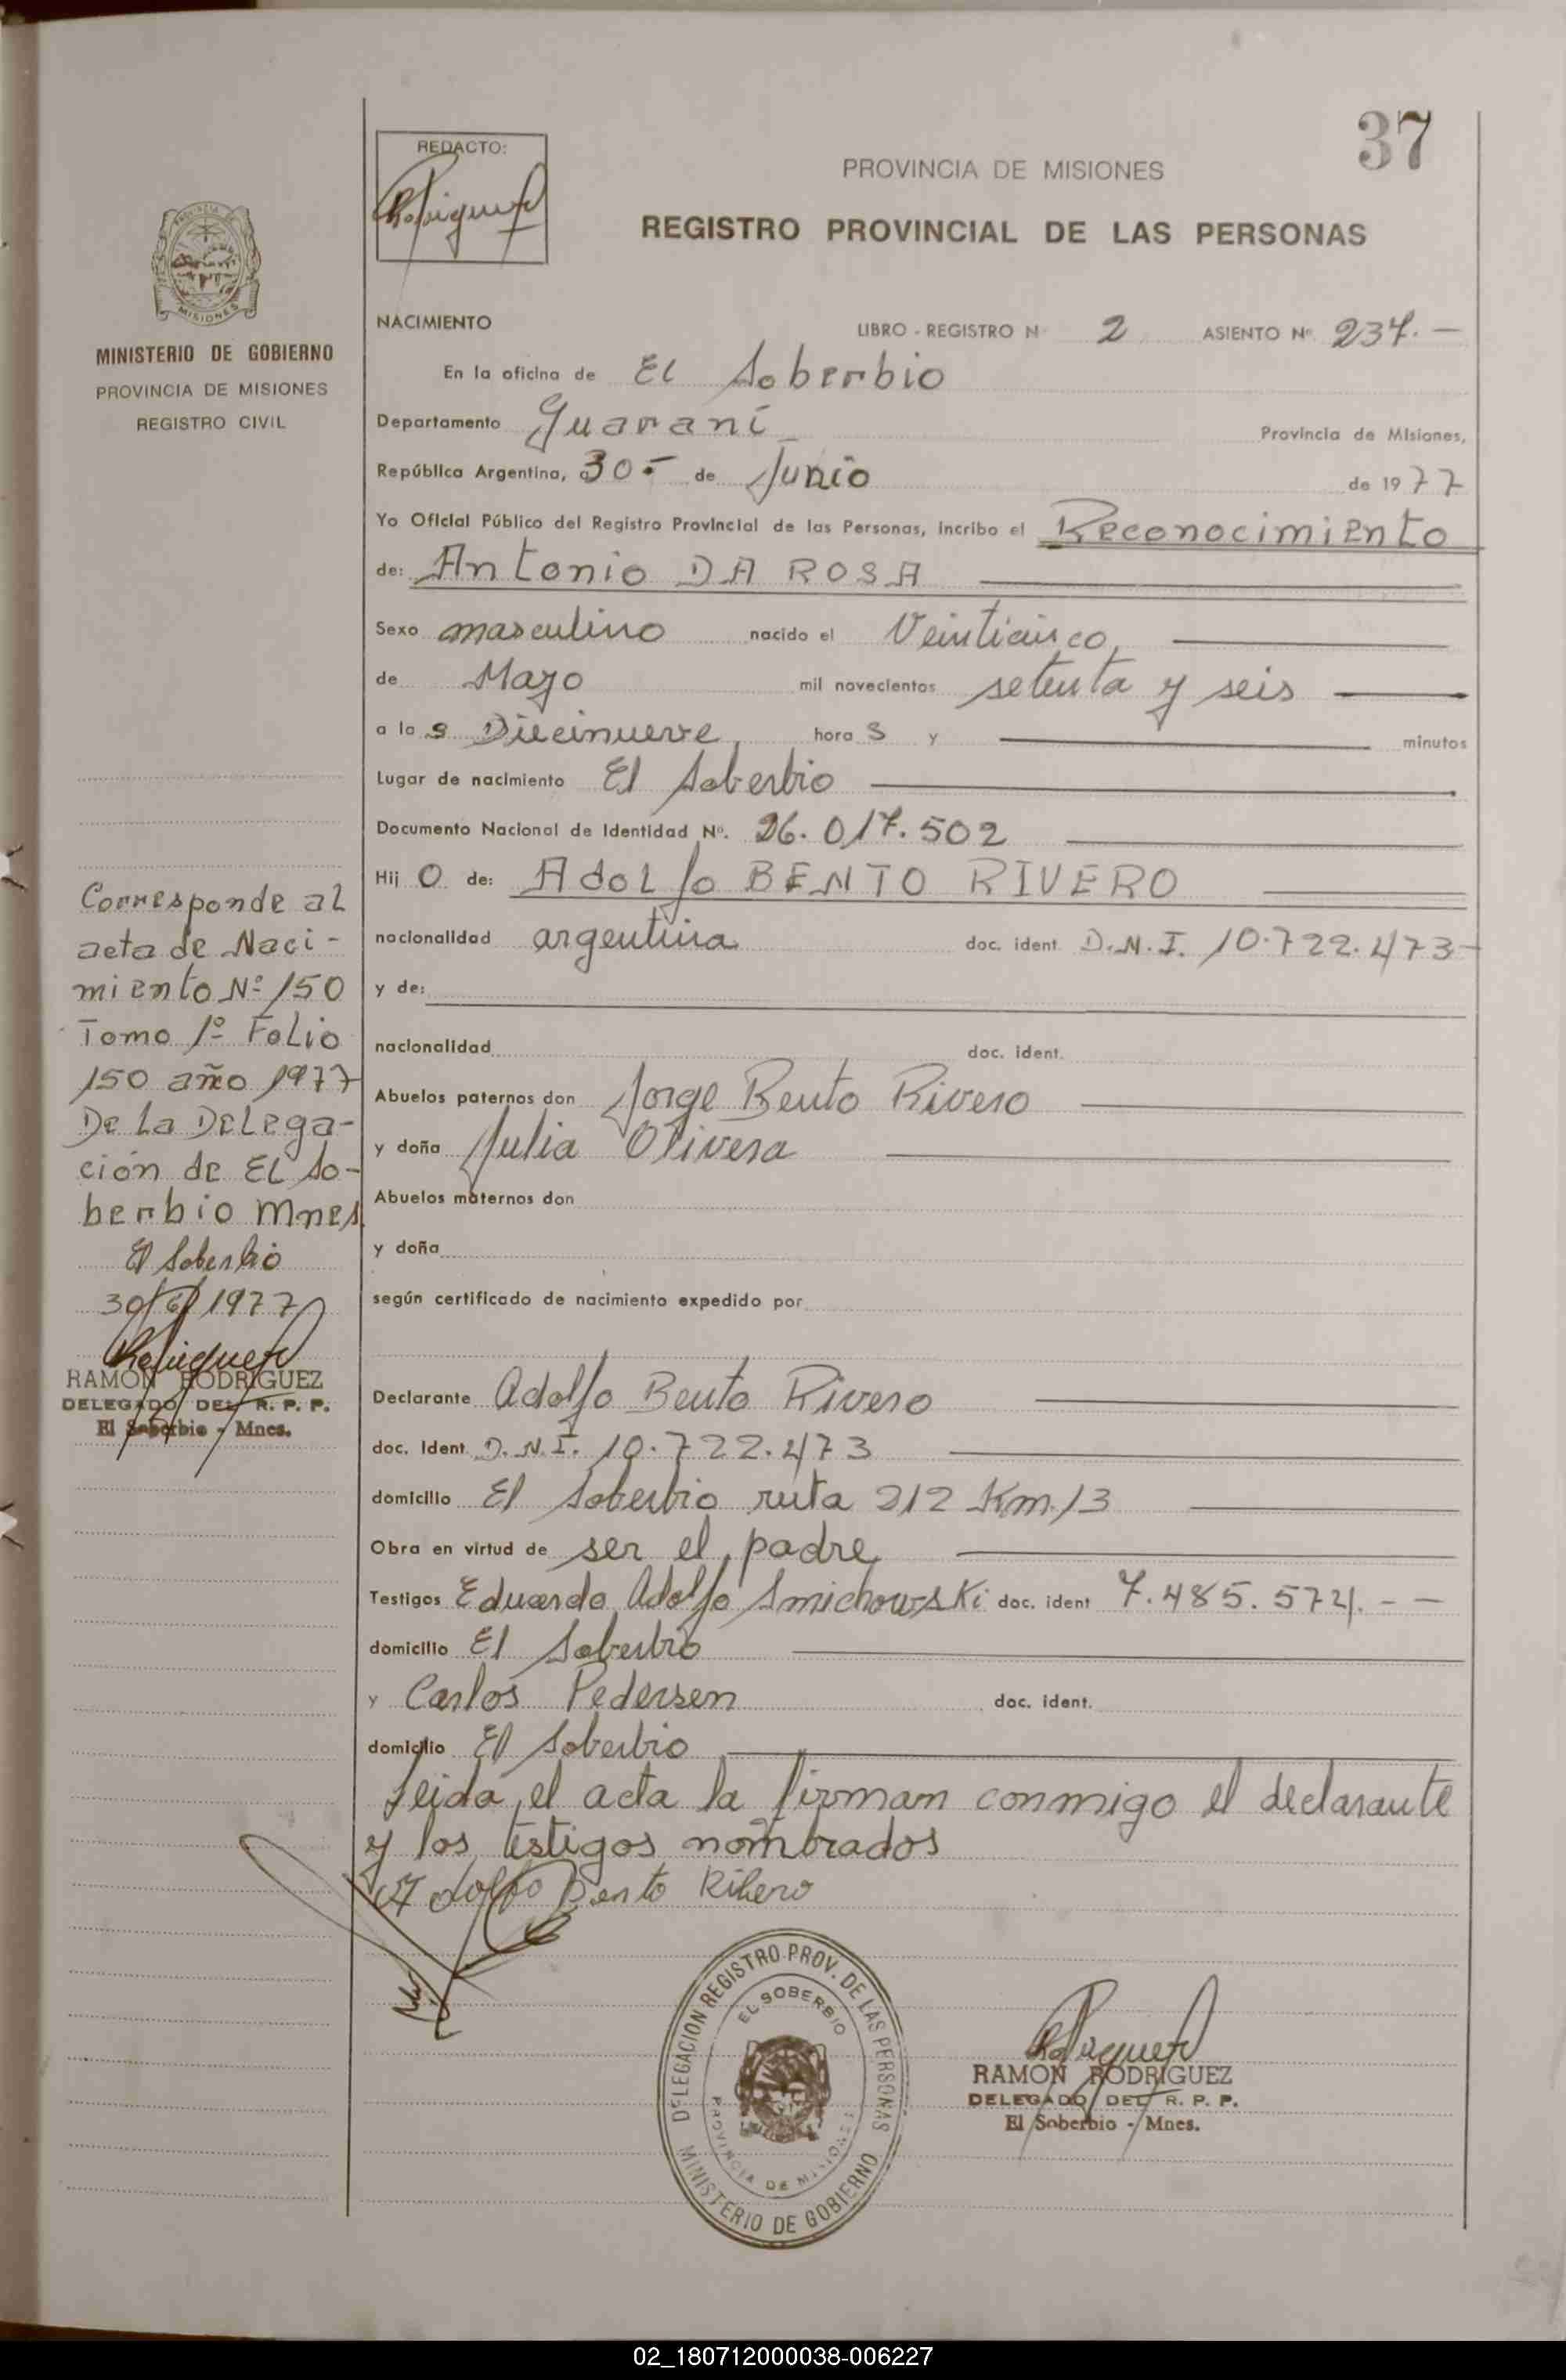 37
REDACTO:
PROVINCIA DE MISIONES
REGISTRO PROVINCIAL DE LAS PERSONAS
MISIONES
MINISTERIO DE GOBIERNO
PROVINCIA DE MISIONES
REGISTRO CIVIL
NACIMIENTO LIBRO - REGISTRO N 2 ASIENTO Nº 237.-
En la oficina de El Soberbio
Departamento Guaraní Provincia de Misiones,
República Argentina, a 30- de Junio de 1977
Yo Oficial Público del Registro Provincial de las Personas, incribo el Reconocimiento
de: Antonio DA ROSA
Sexo masculino nacido el Veinticinco
de Mayo mil novecientos setenta y seis
a las Diecinueve, horas y minutos
Lugar de nacimiento El Soberbio
Documento Nacional de Identidad Nº. 26.017.502
Hijo de: Adolfo BENTO RIVERO
nacionalidad argentina doc. ident. D.N.I. 10.722.473-
y de:
nacionalidad doc. ident.
Abuelos paternos don Jorge Bento Rivero
y doña Julia Olivera
Abuelos maternos don
y doña
según certificado de nacimiento expedido por
Declarante Adolfo Bento Rivero
doc. Ident D.N.I. 10.722.473
domicilio El Soberbio ruta 212 Km.13
Obra en virtud de ser el padre
Testigos Eduardo Adolfo Smichowski doc. ident 7.485.574.--
domicilio El Soberbio
y Carlos Pedersen doc. ident.
domicilio El Soberbio
Leida el acta la firman conmigo el declarante
y los testigos nombrados
Adolfo Bento Ribero
Corresponde al
acta de Naci-
miento Nº 150
Tomo 1º Folio
150 año 1977
De la Delega-
ción de El So-
berbio Mnes
El Soberbio
30/6/1977
RAMON RODRIGUEZ
DELEGADO DEL R. P. P.
El Soberbio - Mnes.
DELEGACION REGISTRO PROV. DE LAS PERSONAS
EL SOBERBIO
PROVINCIA DE MISIONES
MINISTERIO DE GOBIERNO
RAMON RODRIGUEZ
DELEGADO DEL R. P. P.
El Soberbio - Mnes.
02_180712000038-006227